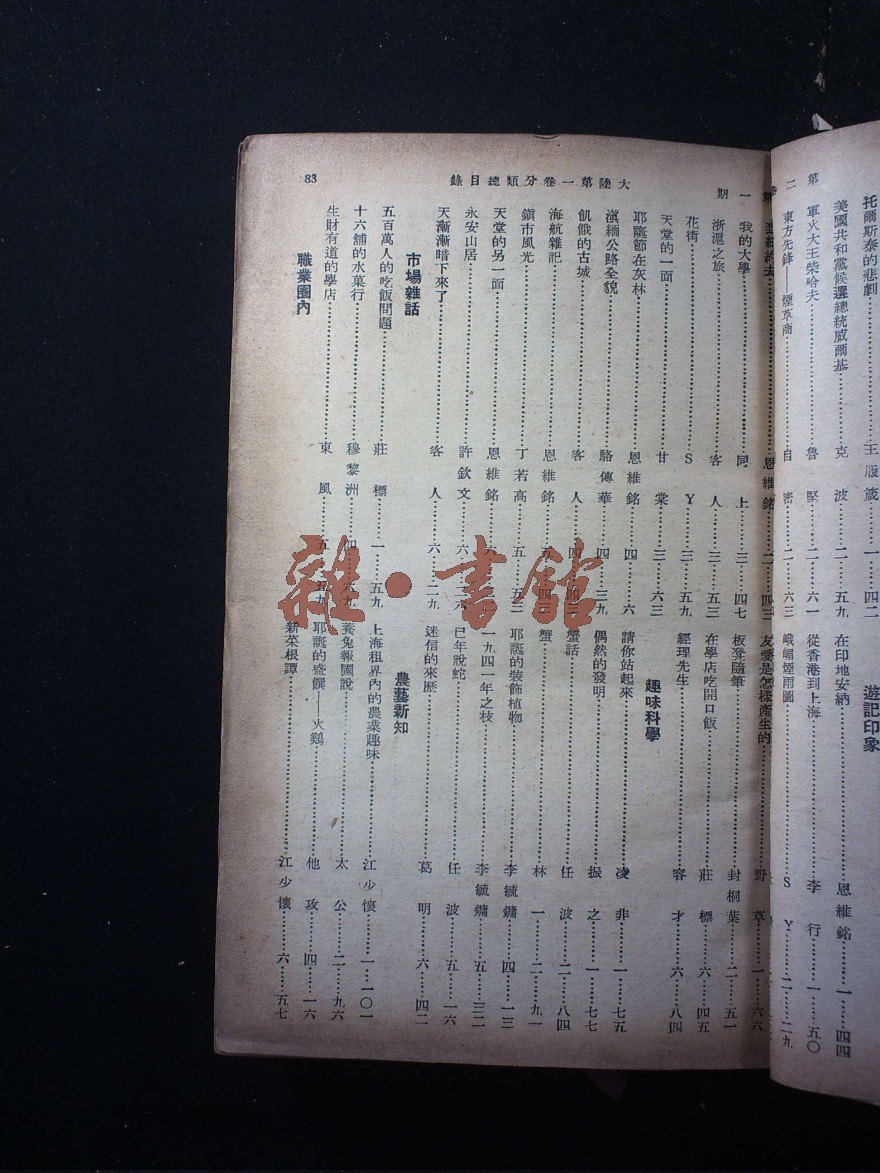 第二
托爾斯泰的悲劇……王履箴……一……四二
美國共和黨候選總統威爾基……克波……二……五九
軍火大王柴哈夫……魯堅……二……六一
東方先鋒——煙草商……自密……二……六三
遊記印象
在印地安納……恩維銘……一……四四
從香港到上海……李行……一……五〇
峨嵋煙雨圖……SY……二……二九
第一期
大陸第一卷分類總目錄
83
紐約去……恩維銘……二……四三
我的大學……同上……三……四七
浙滬之旅……客人……三……五三
花街……SY……三……五九
天堂的一面……甘棠……三……六三
耶誕節在灰林……恩維銘……四……六
滇緬公路全貌……駱傳華……四……三九
飢餓的古城……客人……四……四三
海航雜記……恩維銘……五……四三
鎮市風光……丁若高……五……五三
天堂的另一面……恩維銘……六
永安山居……許欽文……六……二六
天漸漸暗下來了……客人……六……二九
市場雜話
五百萬人的吃飯問題……莊標……一……五九
十六舖的水菓行……穆黎洲……四……六九
生財有道的學店……東風……五……五九
職業圈內
友愛是怎樣產生的……野草……一……六六
板凳隨筆……封桐葉……二……五一
在學店吃開口飯……莊標……六……四五
經理先生……容才……六……八四
趣味科學
請你站起來……凌非……一……七五
偶然的發明……振之……一……七七
蟹話……任波……二……八四
蟹……林一……二……九一
耶誕的裝飾植物……李毓鏞……四……一三
一九四一年之枝……李毓鏞……五……三二
已年說蛇……任波……五……一六
迷信的來歷……葛明……六……四二
農藝新知
上海租界內的農業趣味……江少懷……一……一〇一
養兔報國說……太公……二……九六
耶誕的盛饌——火鷄……他攻……四……一六
新菜根譚……江少懷……六……五七
雜·書館